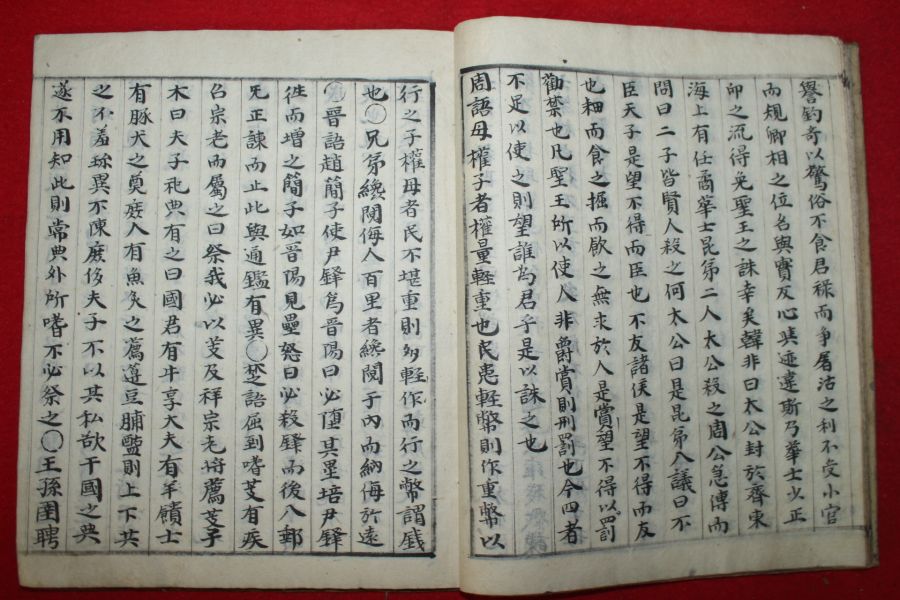 譽釣奇以驚俗不食君祿而爭屠沽之利不受小官
而規卿相之位名與實反心與迹違斯乃華士少正
卯之流得免聖王之誅幸矣韓非曰太公封於齊東
海上有任矞華士昆弟二人太公殺之周公急傳而
問曰二子皆賢人殺之何太公曰是昆弟八議曰不
臣天子是望不得而臣也不友諸侯是望不得而友
也畊而食之掘而飮之無求於人是賞望不得以罰
勸禁也凡聖王所以使人非爵賞則刑罰也今四者
不足以使之則望誰為君乎是以誅之也
周語母權子者權量輕重也民患輕幣則作重幣以
行之子權母者民不堪重則多輕作而行之幣謂錢
也〇兄弟纔鬩侮人百里者纔鬩于内而納侮於遠
〇晉語趙簡子使尹鐸為晉陽曰必墮其壘培尹鐸
徃而增之簡子如晉陽見壘怒曰必殺鐸而後入郵
无正諫而止此與通鑑有異〇楚語屈到嗜芰有疾
召宗老而屬之曰祭我必以芰及祥宗老將薦芰子
木曰夫子祀典有之曰國君有牛享大夫有羊饋士
有豚犬之奠庶人有魚炙之薦籩豆脯醢則上下共
之不羞珎異不陳庶侈夫子不以其私欲干國之典
遂不用知此則常典外所嗜不必祭之〇王孫圉聘